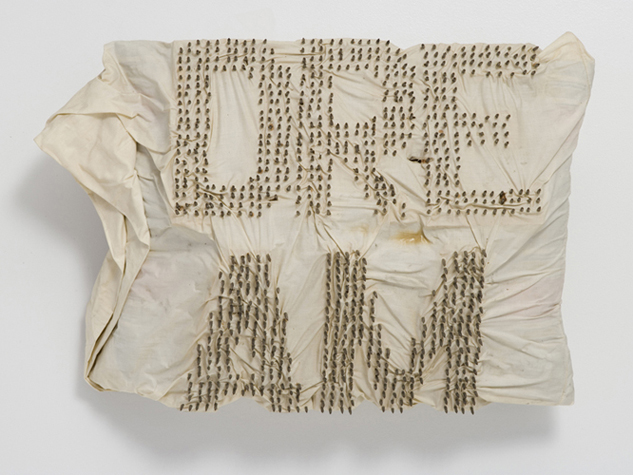 DRE
AM